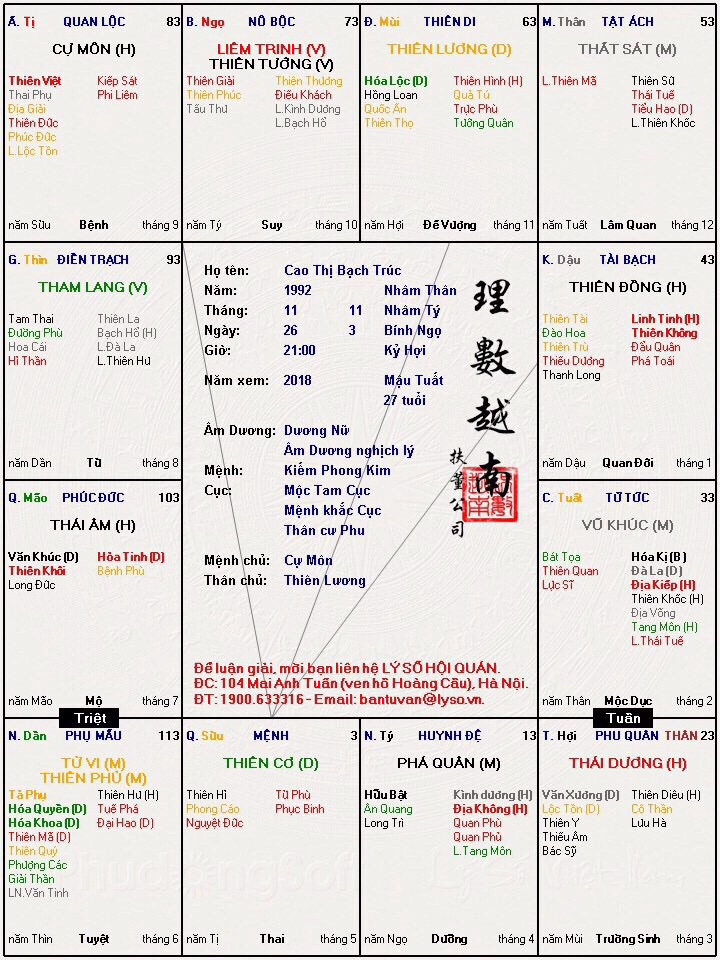 Ấ. Tị QUAN LỘC 83
CỰ MÔN (H)
Thiên Việt Kiếp Sát
Thai Phụ Phi Liêm
Địa Giải
Thiên Đức
Phúc Đức
L.Lộc Tồn
năm Sửu Bệnh tháng 9
B. Ngọ NÔ BỘC 73
LIÊM TRINH (V)
THIÊN TƯỚNG (V)
Thiên Giải Thiên Thương
Thiên Phúc Điếu Khách
Tấu Thư L.Kình Dương
L.Bạch Hổ
năm Tý Suy tháng 10
Đ. Mùi THIÊN DI 63
THIÊN LƯƠNG (D)
Hóa Lộc (D) Thiên Hình (H)
Hồng Loan Quả Tú
Quốc Ấn Trực Phù
Thiên Thọ Tướng Quân
năm Hợi Đế Vượng tháng 11
M. Thân TẬT ÁCH 53
THẤT SÁT (M)
L.Thiên Mã Thiên Sứ
Thái Tuế
Tiểu Hao (D)
L.Thiên Khốc
năm Tuất Lâm Quan tháng 12
G. Thìn ĐIỀN TRẠCH 93
THAM LANG (V)
Tam Thai Thiên La
Đường Phù Bạch Hổ (H)
Hoa Cái L.Đà La
Hỉ Thần L.Thiên Hư
năm Dần Tử tháng 8
Họ tên: Cao Thị Bạch Trúc
Năm: 1992 Nhâm Thân
Tháng: 11 11 Nhâm Tý
Ngày: 26 3 Bính Ngọ
Giờ: 21:00 Kỷ Hợi
Năm xem: 2018 Mậu Tuất
27 tuổi
Âm Dương: Dương Nữ
Âm Dương nghịch lý
Mệnh: Kiếm Phong Kim
Cục: Mộc Tam Cục
Mệnh khắc Cục
Thân cư Phu
Mệnh chủ: Cự Môn
Thân chủ: Thiên Lương
理數越南
扶董公司
Để luận giải, mời bạn liên hệ LÝ SỐ HỘI QUÁN.
ĐC: 104 Mai Anh Tuấn (ven hồ Hoàng Cầu), Hà Nội.
ĐT: 1900.633316 - Email: bantuvan@lyso.vn.
K. Dậu TÀI BẠCH 43
THIÊN ĐỒNG (H)
Thiên Tài Linh Tinh (H)
Đào Hoa Thiên Không
Thiên Trù Đẩu Quân
Thiếu Dương Phá Toái
Thanh Long
năm Dậu Quan Đới tháng 1
Q. Mão PHÚC ĐỨC 103
THÁI ÂM (H)
Văn Khúc (D) Hỏa Tinh (D)
Thiên Khôi Bệnh Phù
Long Đức
năm Mão Mộ tháng 7
Triệt
C. Tuất TỬ TỨC 33
VŨ KHÚC (M)
Bát Tọa Hóa Kị (B)
Thiên Quan Đà La (D)
Lực Sĩ Địa Kiếp (H)
Thiên Khốc (H)
Địa Võng
Tang Môn (H)
L.Thái Tuế
năm Thân Mộc Dục tháng 2
Tuần
N. Dần PHỤ MẪU 113
TỬ VI (M)
THIÊN PHỦ (M)
Tả Phụ Thiên Hư (H)
Hóa Quyền (D) Tuế Phá
Hóa Khoa (D) Đại Hao (D)
Thiên Mã (D)
Thiên Quý
Phượng Các
Giải Thần
LN.Văn Tinh
năm Thìn Tuyệt tháng 6
Q. Sửu MỆNH 3
THIÊN CƠ (D)
Thiên Hỉ Tử Phù
Phong Cáo Phục Binh
Nguyệt Đức
năm Tị Thai tháng 5
N. Tý HUYNH ĐỆ 13
PHÁ QUÂN (M)
Hữu Bật Kình dương (H)
Ân Quang Địa Không (H)
Long Trì Quan Phù
Quan Phủ
L.Tang Môn
năm Ngọ Dưỡng tháng 4
T. Hợi PHU QUÂN THÂN 23
THÁI DƯƠNG (H)
Văn Xương (D) Thiên Diêu (H)
Lộc Tồn (D) Cô Thần
Thiên Y Lưu Hà
Thiếu Âm
Bác Sỹ
năm Mùi Trường Sinh tháng 3